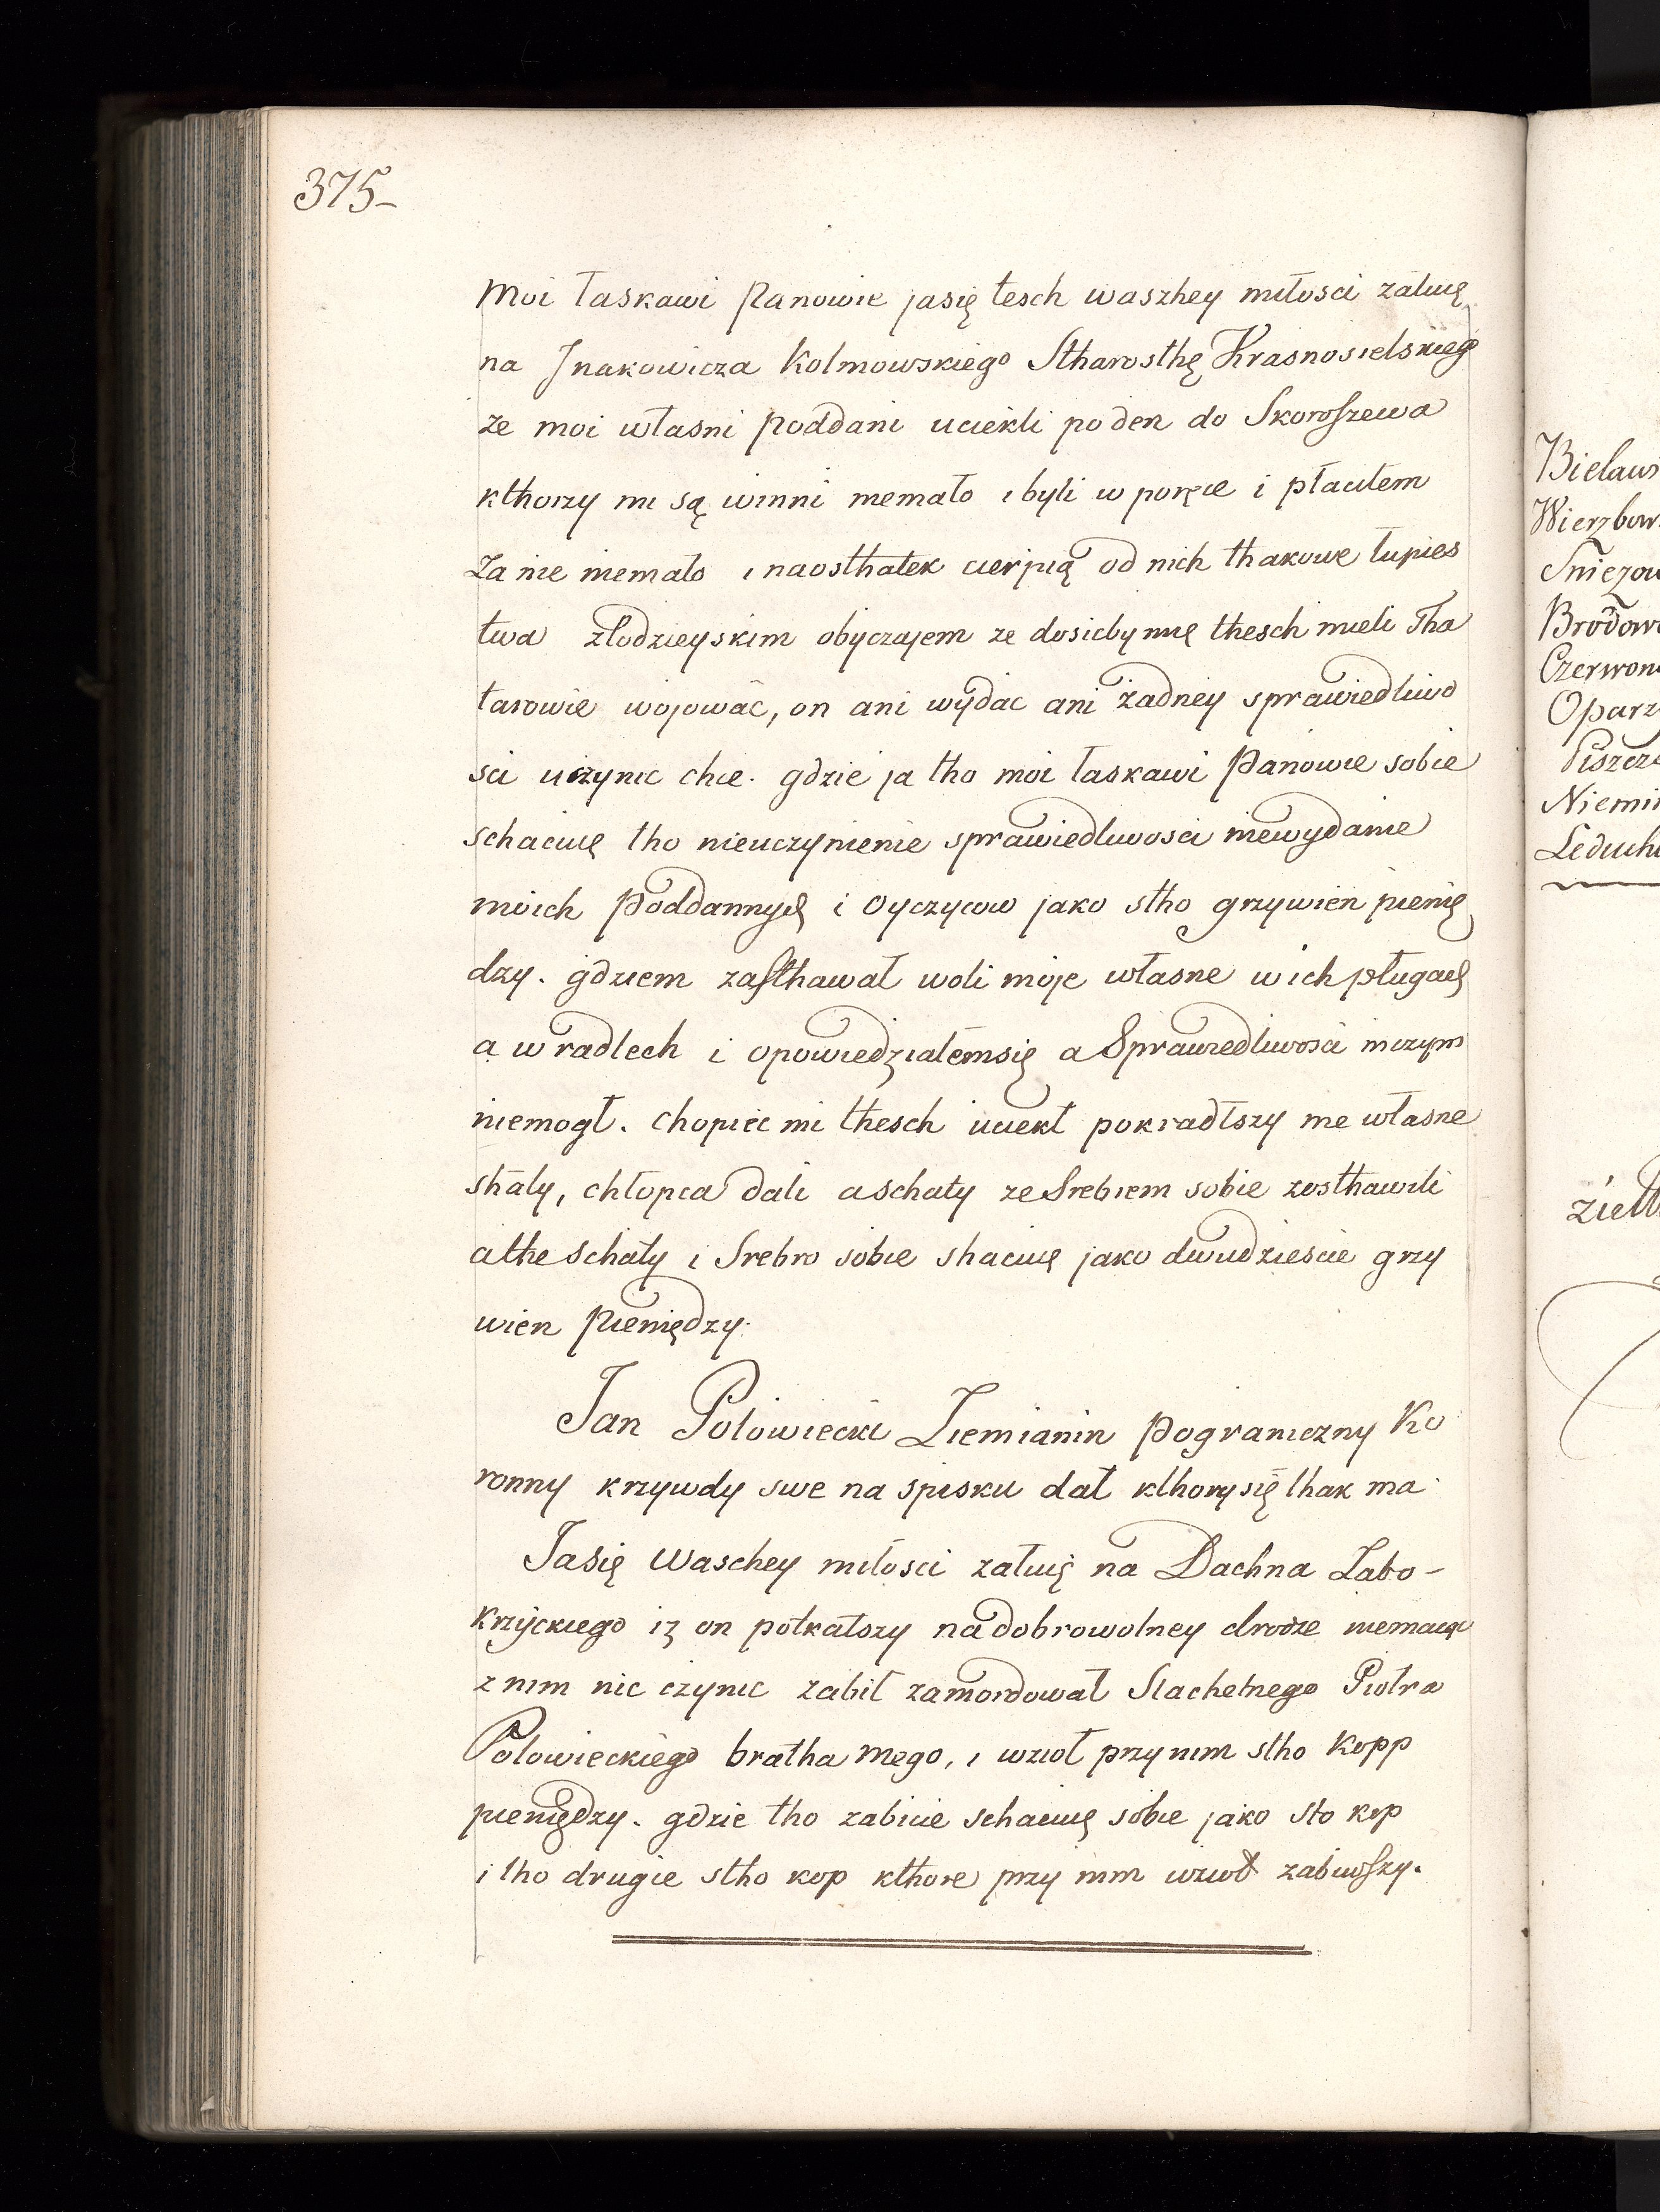 375-
Moi łaskawi Panowie jasię tesch waszhey miłosci załuię
na Jnakowicza Kolmowskiego Stharosthę Krasnosielskieg
ze moi własni poddani uciekli po den do Skoroszewa
kthorzy mi są winni niemało i byli w poręce i płaciłem
Za nie niemało i naosthatek cierpią od nich thakowe łupies
twa złodzieyskim obyczajem ze dosicbymię thesch mieli Tha
tarowie wojować, on ani wydac ani żadney sprawiedliwo
sci uczynic chce. gdzie ja tho moi łaskawi Panowie sobie
schacuię tho nieuczynienie sprawiedliwosci niewydanie
moich Poddannych i Oyczycow jako stho grzywien pienię
dzy. gdziem zasthawał woli moje własne w ich pługach
a w radlech i opowiedziałemsię a Sprawiedliwosci niczym
niemogł. Chopiec mi thesch uciekł pokradłszy me własne
shaty, chłopca dali a schaty ze Srebrem sobie zosthawili
a the schaty i Srebro sobie shacuię jako dwudziescie grzy
wien Pieniędzy.
Jan Połowiecki Ziemianin Pograniczny Ko
ronny krzywdy swe na spisku dał kthory się thak ma
Jasię Waschey miłosci załuię na Dachna Łabo-
Krzyckiego iz on potkałszy na dobrowolney drodze niemaiąc
z nim nic czynic zabił zamordował Slachetnego Piotra
Połowieckiego bratha mego, i wzioł przy nim stho Kopp
pieniędzy. gdzie tho zabicie schacuię sobie jako sto kop
i tho drugie stho kop kthore przy nim wzioł zabiwszy.
Bielaws
Wierzbow
Sniezow
Brodow
Czerwon
Oparz
Piszcz
Niemi
Leduch